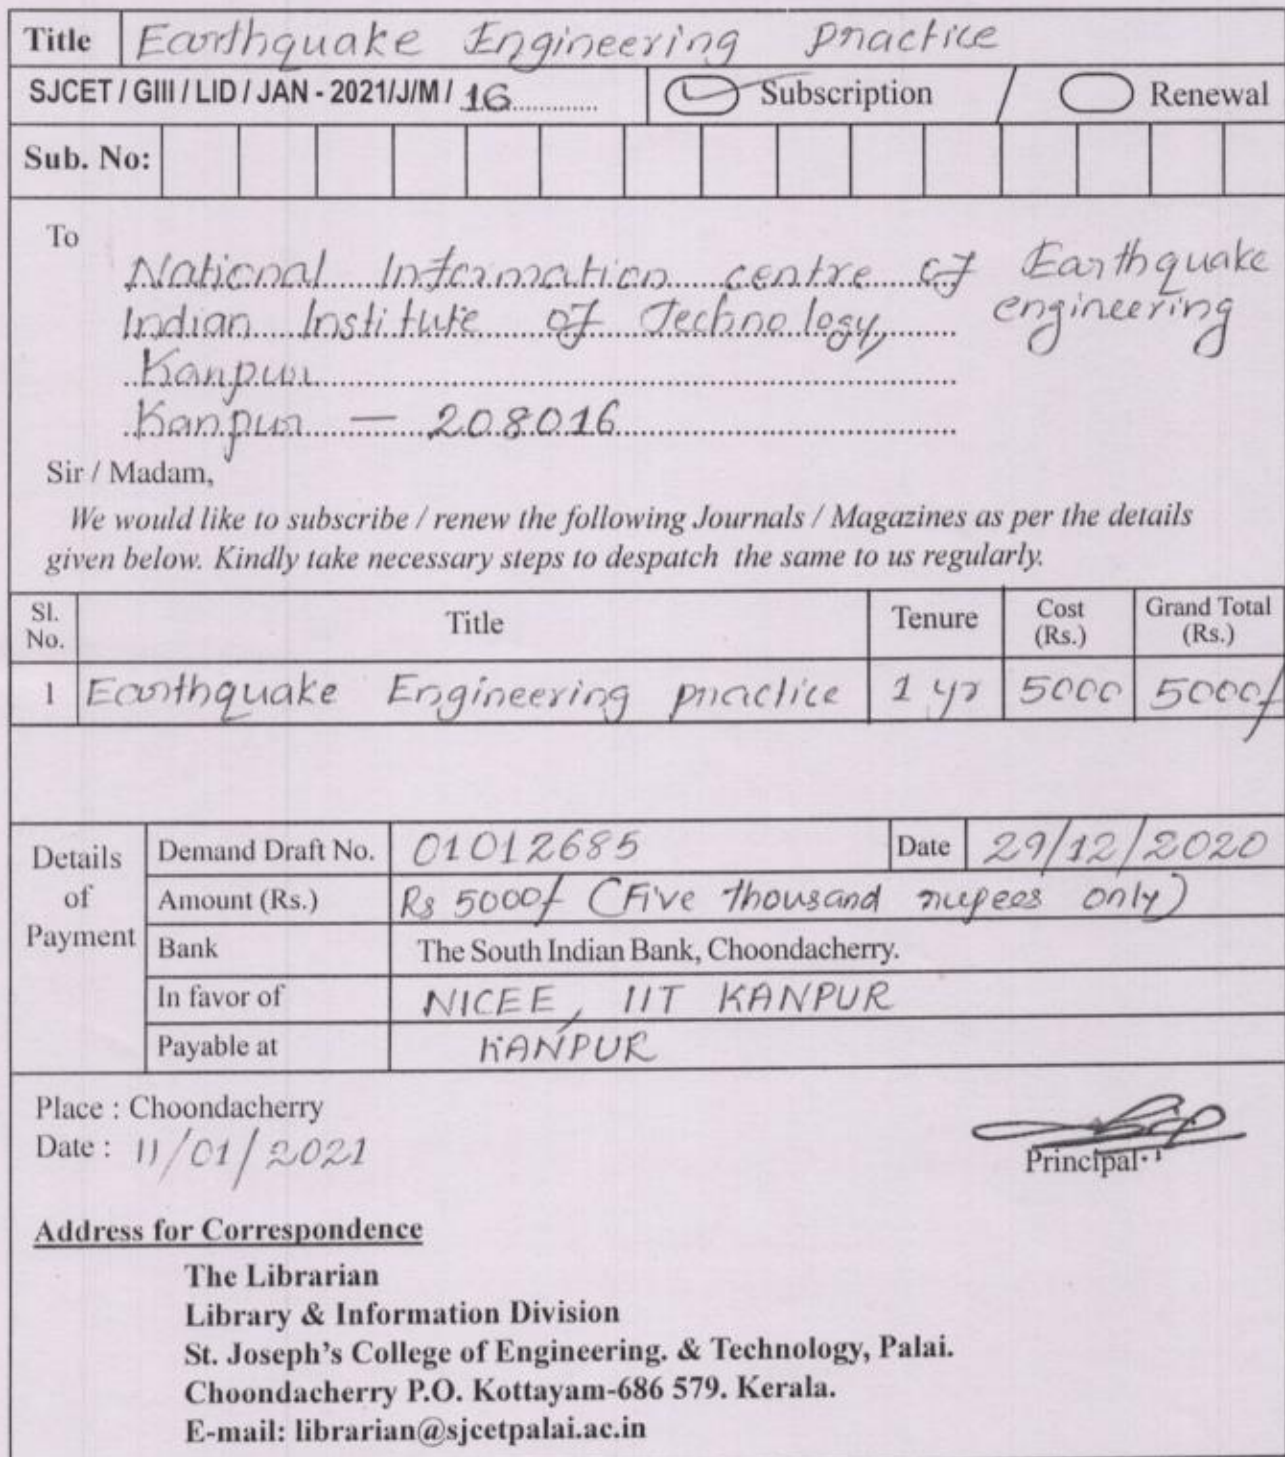 Title Earthquake Engineering practice
SJCET / GIII / LID / JAN - 2021/J/M / 16 Subscription / Renewal
Sub. No:
To
National Information centre of Earthquake
Indian Institute of Technology, engineering
Kanpur
Kanpur — 208016
Sir / Madam,
We would like to subscribe / renew the following Journals / Magazines as per the details
given below. Kindly take necessary steps to despatch the same to us regularly.
Sl. No. Title Tenure Cost (Rs.) Grand Total (Rs.)
1 Earthquake Engineering practice 1 yr 5000 5000/
Details of Payment
Demand Draft No. 01012685 Date 29/12/2020
Amount (Rs.) Rs 5000/ (Five thousand rupees only)
Bank The South Indian Bank, Choondacherry.
In favor of NICEE, IIT KANPUR
Payable at KANPUR
Place : Choondacherry
Date : 11/01/2021
Principal
Address for Correspondence
The Librarian
Library & Information Division
St. Joseph's College of Engineering. & Technology, Palai.
Choondacherry P.O. Kottayam-686 579. Kerala.
E-mail: librarian@sjcetpalai.ac.in